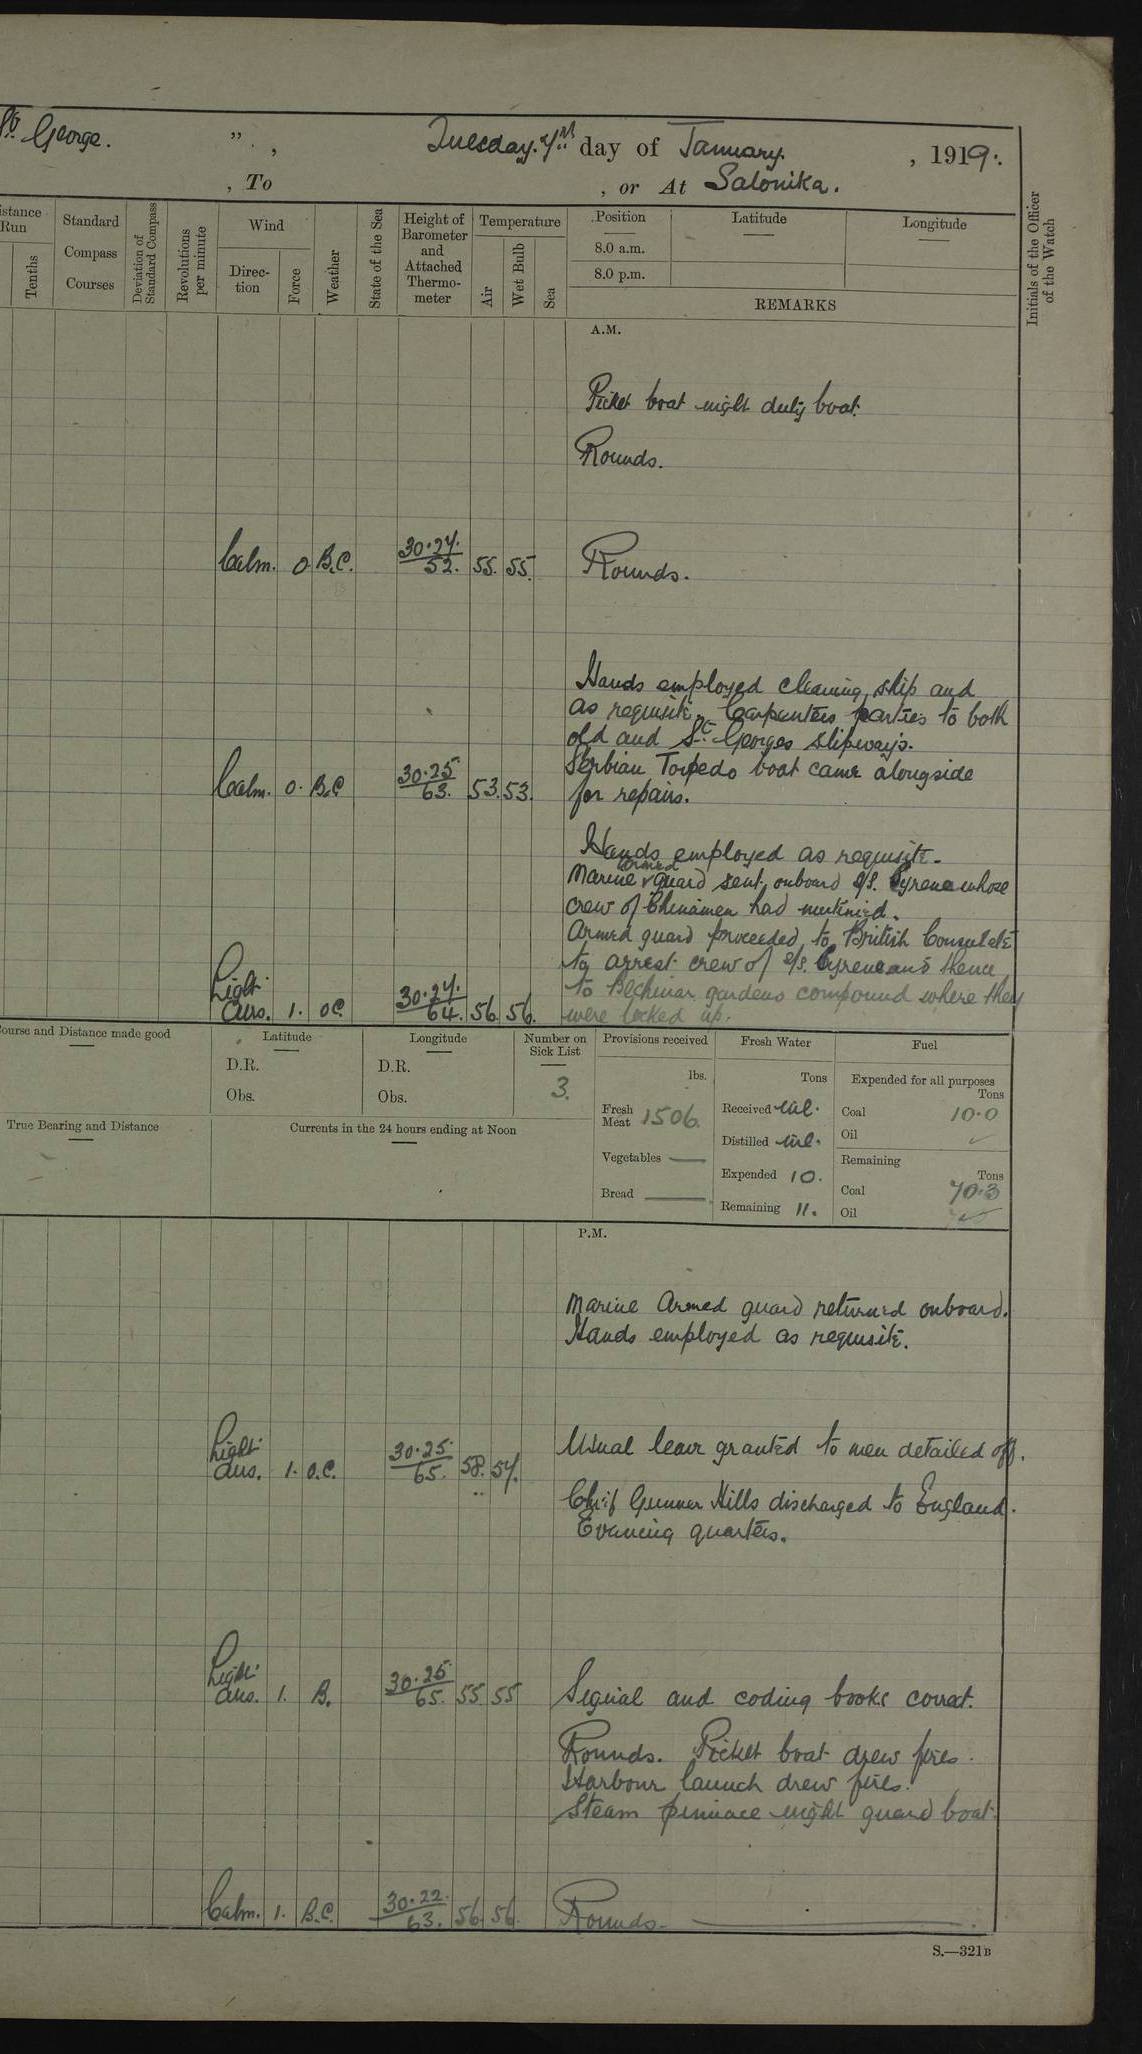 St. George. " . ,
Tuesday. 7th day of January. , 1919.
, To , or At Salonika.
istance Run
Tenths
Standard Compass Courses
Deviation of Standard Compass
Revolutions per minute
Wind
Direction
Force
Weather
State of the Sea
Height of Barometer and Attached Thermometer
Temperature
Air
Wet Bulb
Sea
Position
8.0 a.m.
8.0 p.m.
Latitude
Longitude
REMARKS
Initials of the Officer of the Watch
A.M.
Picket boat night duty boat.
Rounds.
Calm. 0. B.C. 30.27. 52. 55. 55. Rounds.
Hands employed cleaning ship and
as requisite. Carpenters parties to both
old and St. Georges slipways.
Serbian Torpedo boat came alongside
Calm. 0. B.C 30.25 63. 53. 53. for repairs.
Hands employed as requisite.
Marine armed guard sent onboard S/S. Cyrene whose
crew of Chinamen had mutinied.
Armed guard proceeded to British Consulate
to arrest crew of S/S. Cyrene and thence
to Bechinar gardens compound where they
Light airs. 1. O.C. 30.27. 64. 56. 56. were locked up.
ourse and Distance made good
Latitude
D.R.
Obs.
Longitude
D.R.
Obs.
Number on Sick List
3.
Provisions received
lbs.
Fresh Meat 1506.
Vegetables —
Bread —
Fresh Water
Tons
Received nil.
Distilled nil.
Expended 10.
Remaining 11.
Fuel
Expended for all purposes
Tons
Coal 10.0
Oil ✓
Remaining
Tons
Coal 70.3
Oil
True Bearing and Distance
Currents in the 24 hours ending at Noon
P.M.
Marine Armed guard returned onboard.
Hands employed as requisite.
Light airs. 1. O.C. 30.25. 65. 58. 57. Usual leave granted to men detailed off.
Chief Gunner Hills discharged to England.
Evening quarters.
Light airs. 1. B. 30.25 65. 55 55 Signal and coding books correct.
Rounds. Picket boat drew fires.
Harbour launch drew fires.
Steam pinnace night guard boat.
Calm. 1. B.C. 30.22. 63. 56 56. Rounds.
S.—321B